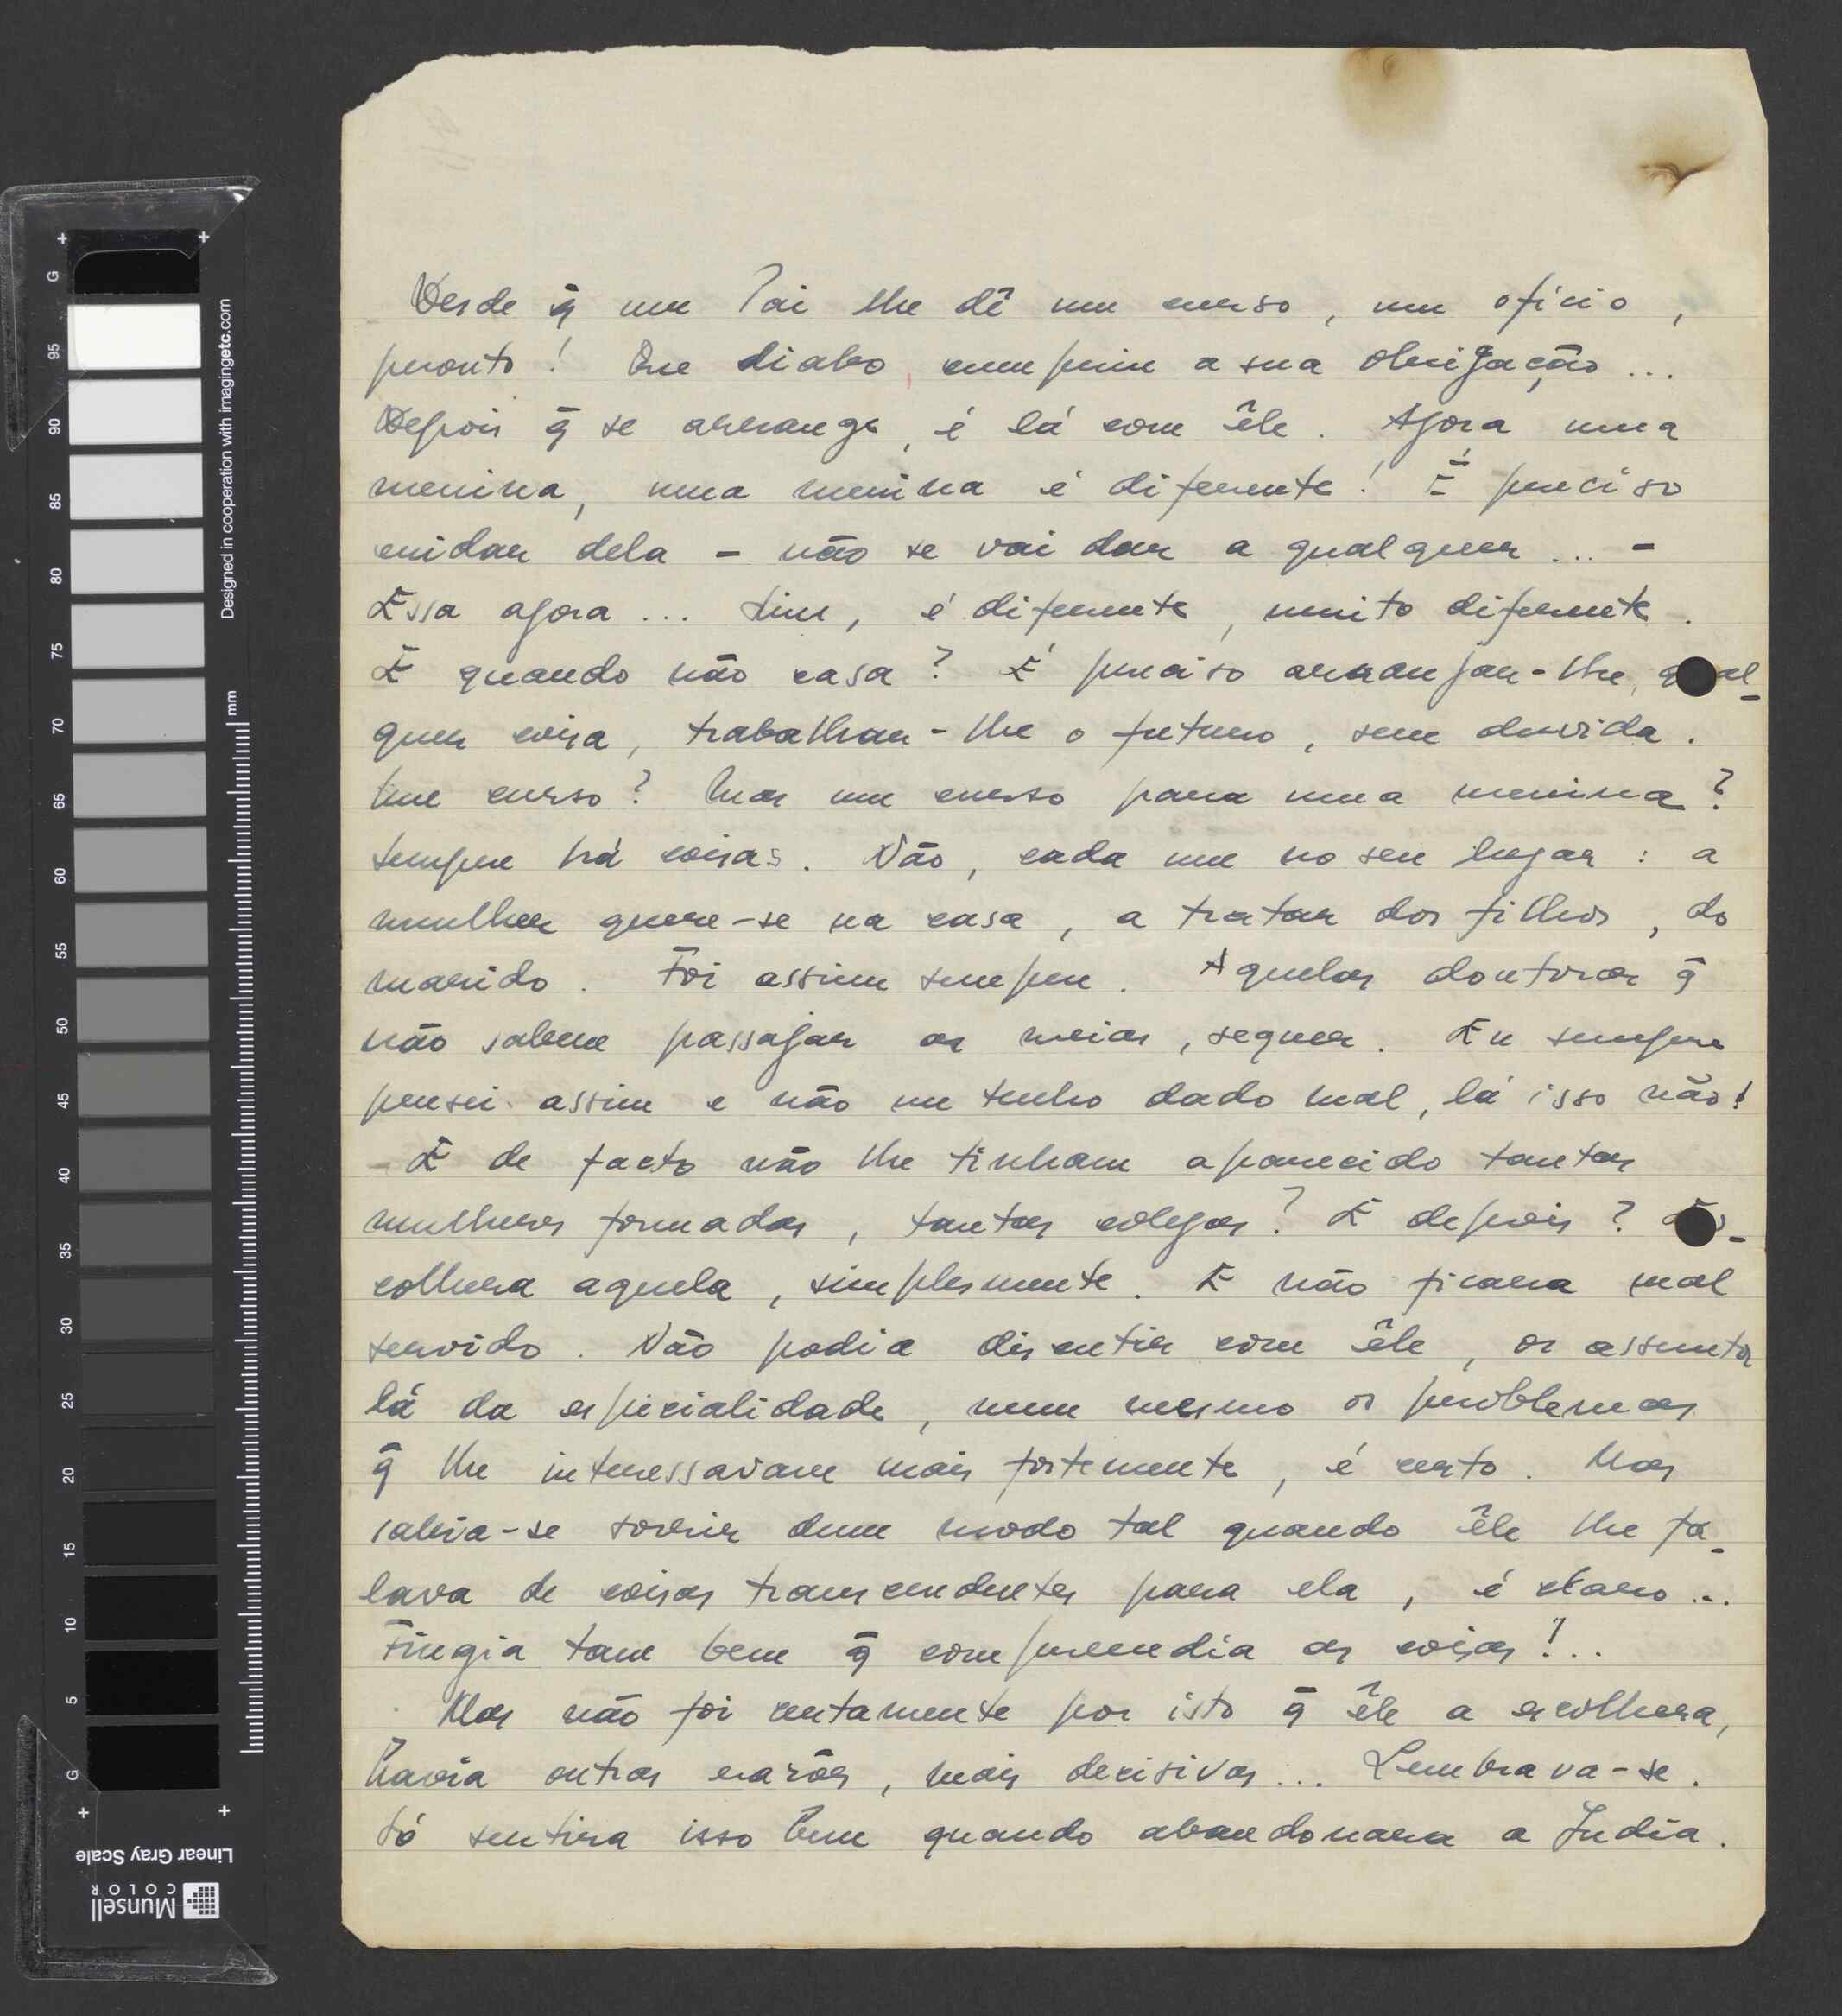 Desde q̃ um Pai lhe dê um curso, um ofício,
pronto! Que diabo, cumpriu a sua obrigação...
Depois q̃ se arrange, é lá com êle. Agora uma
menina, uma menina é diferente! É preciso
cuidar dela – não se vai dar a qualquer... –
Essa agora... Sim, é diferente, muito diferente.
E quando não casa? É preciso arranjar-lhe, qual-
quer coisa, trabalhar-lhe o futuro, sem duvida.
Um curso? Mas um curso para uma menina?
Sempre há coisas. Não, cada um no seu lugar: a
mulher quere-se na casa, a tratar dos filhos, do
marido. Foi assim sempre. Aquelas doutoras q̃
não sabem passajar as meias, sequer. Eu sempre
pensei assim e não me tenho dado mal, lá isso não!
– E de facto não lhe tinham aparecido tantas
mulheres formadas, tantas colegas? E depois? Es-
colhera aquela, simplesmente. E não ficara mal
servido. Não podia discutir com êle, os assuntos
lá da especialidade, nem mesmo os problemas
q̃ lhe interessavam mais fortemente, é certo. Mas
sabia-se sorrir dum modo tal quando êle lhe fa-
lava de coisas transcendentes para ela, é claro...
Fingia tam bem q̃ compreendia as coisas!..
Mas não foi certamente por isto q̃ êle a escolhera,
havia outras razões, mais decisivas... Lembrava-se.
Só sentira isso bem quando abandonara a India.
G 95 90 85 80 75 70 65 60 55 50 45 40 35 30 25 20 15 10 5 G
mm
Designed in cooperation with imagingetc.com
Linear Gray Scale
Munsell
COLOR